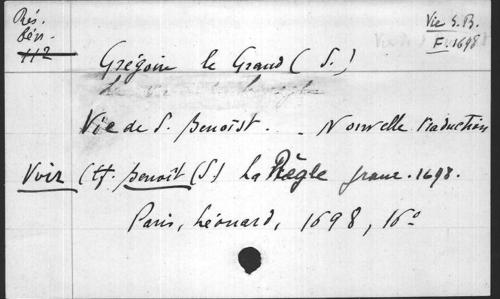 Rés.
bén.
112
Vie S. B.
F. 1698
Grégoire le Grand (S.)
Vie de S. Benoist . . . Nouvelle traduction
Voir (cf. Benoît (S) La Règle franc. 1698.
Paris, Léonard, 1698, 16°